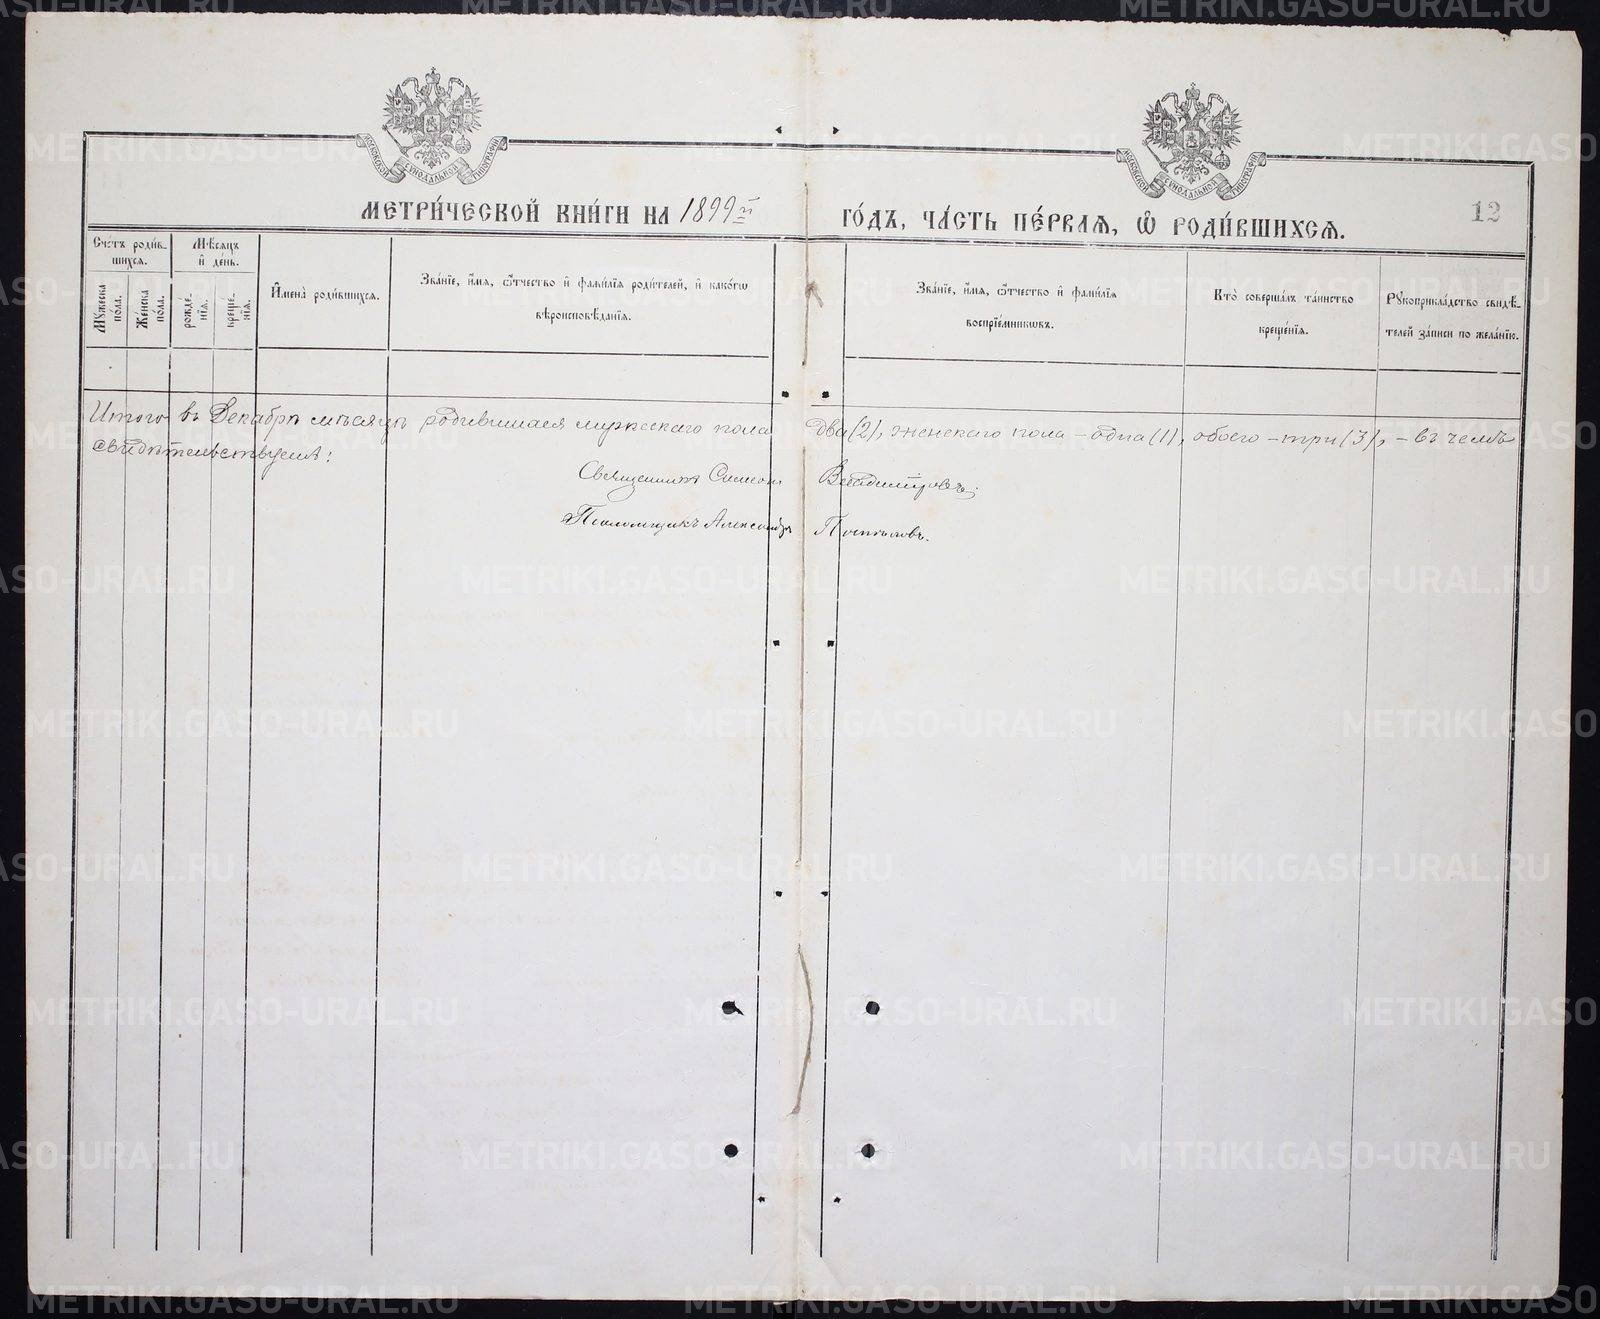 МОСКОВСКОЙ СѴНОДАЛЬНОЙ ТИПОГРАФІИ
МОСКОВСКОЙ СѴНОДАЛЬНОЙ ТИПОГРАФІИ
МЕТРИ́ЧЕСКОЙ КНИ́ГИ НА 1899й ГО́ДЪ, ЧА́СТЬ ПЕ́РВАЯ, Ѡ҆ РОДИ́ВШИХСЯ.
12
Сче́тъ роди́в-
шихся.
Мꙋ́жеска
по́ла.
Же́нска
по́ла.
Мѣ́сяцъ
и҆ де́нь.
рожде́-
нїя.
креще́-
нїя.
И҆мена̀ роди́вшихся.
Зва́нїе, и҆́мя, ѻ҆́тчество и҆ фами́лїя роди́телей, и҆ како́гѡ
вѣроисповѣ́данїя.
Зва́нїе, и҆́мя, ѻ҆́тчество и҆ фами́лїя
воспрїе́мникѡвъ.
Кто̀ соверша́лъ та́инство
креще́нїя.
Рꙋкоприкла́дство свидѣ́-
телей за́писи по жела́нїю.
Итого въ Декабрѣ мѣсяцѣ родившихся мужескаго пола два (2), женскаго пола – одна (1), обоего – три (3), – въ чемъ
свидѣтельствуемъ:
Священникъ Симеон Владимировъ.
Псаломщикъ Александръ Поспѣловъ.
METRIKI.GASO-URAL.RU